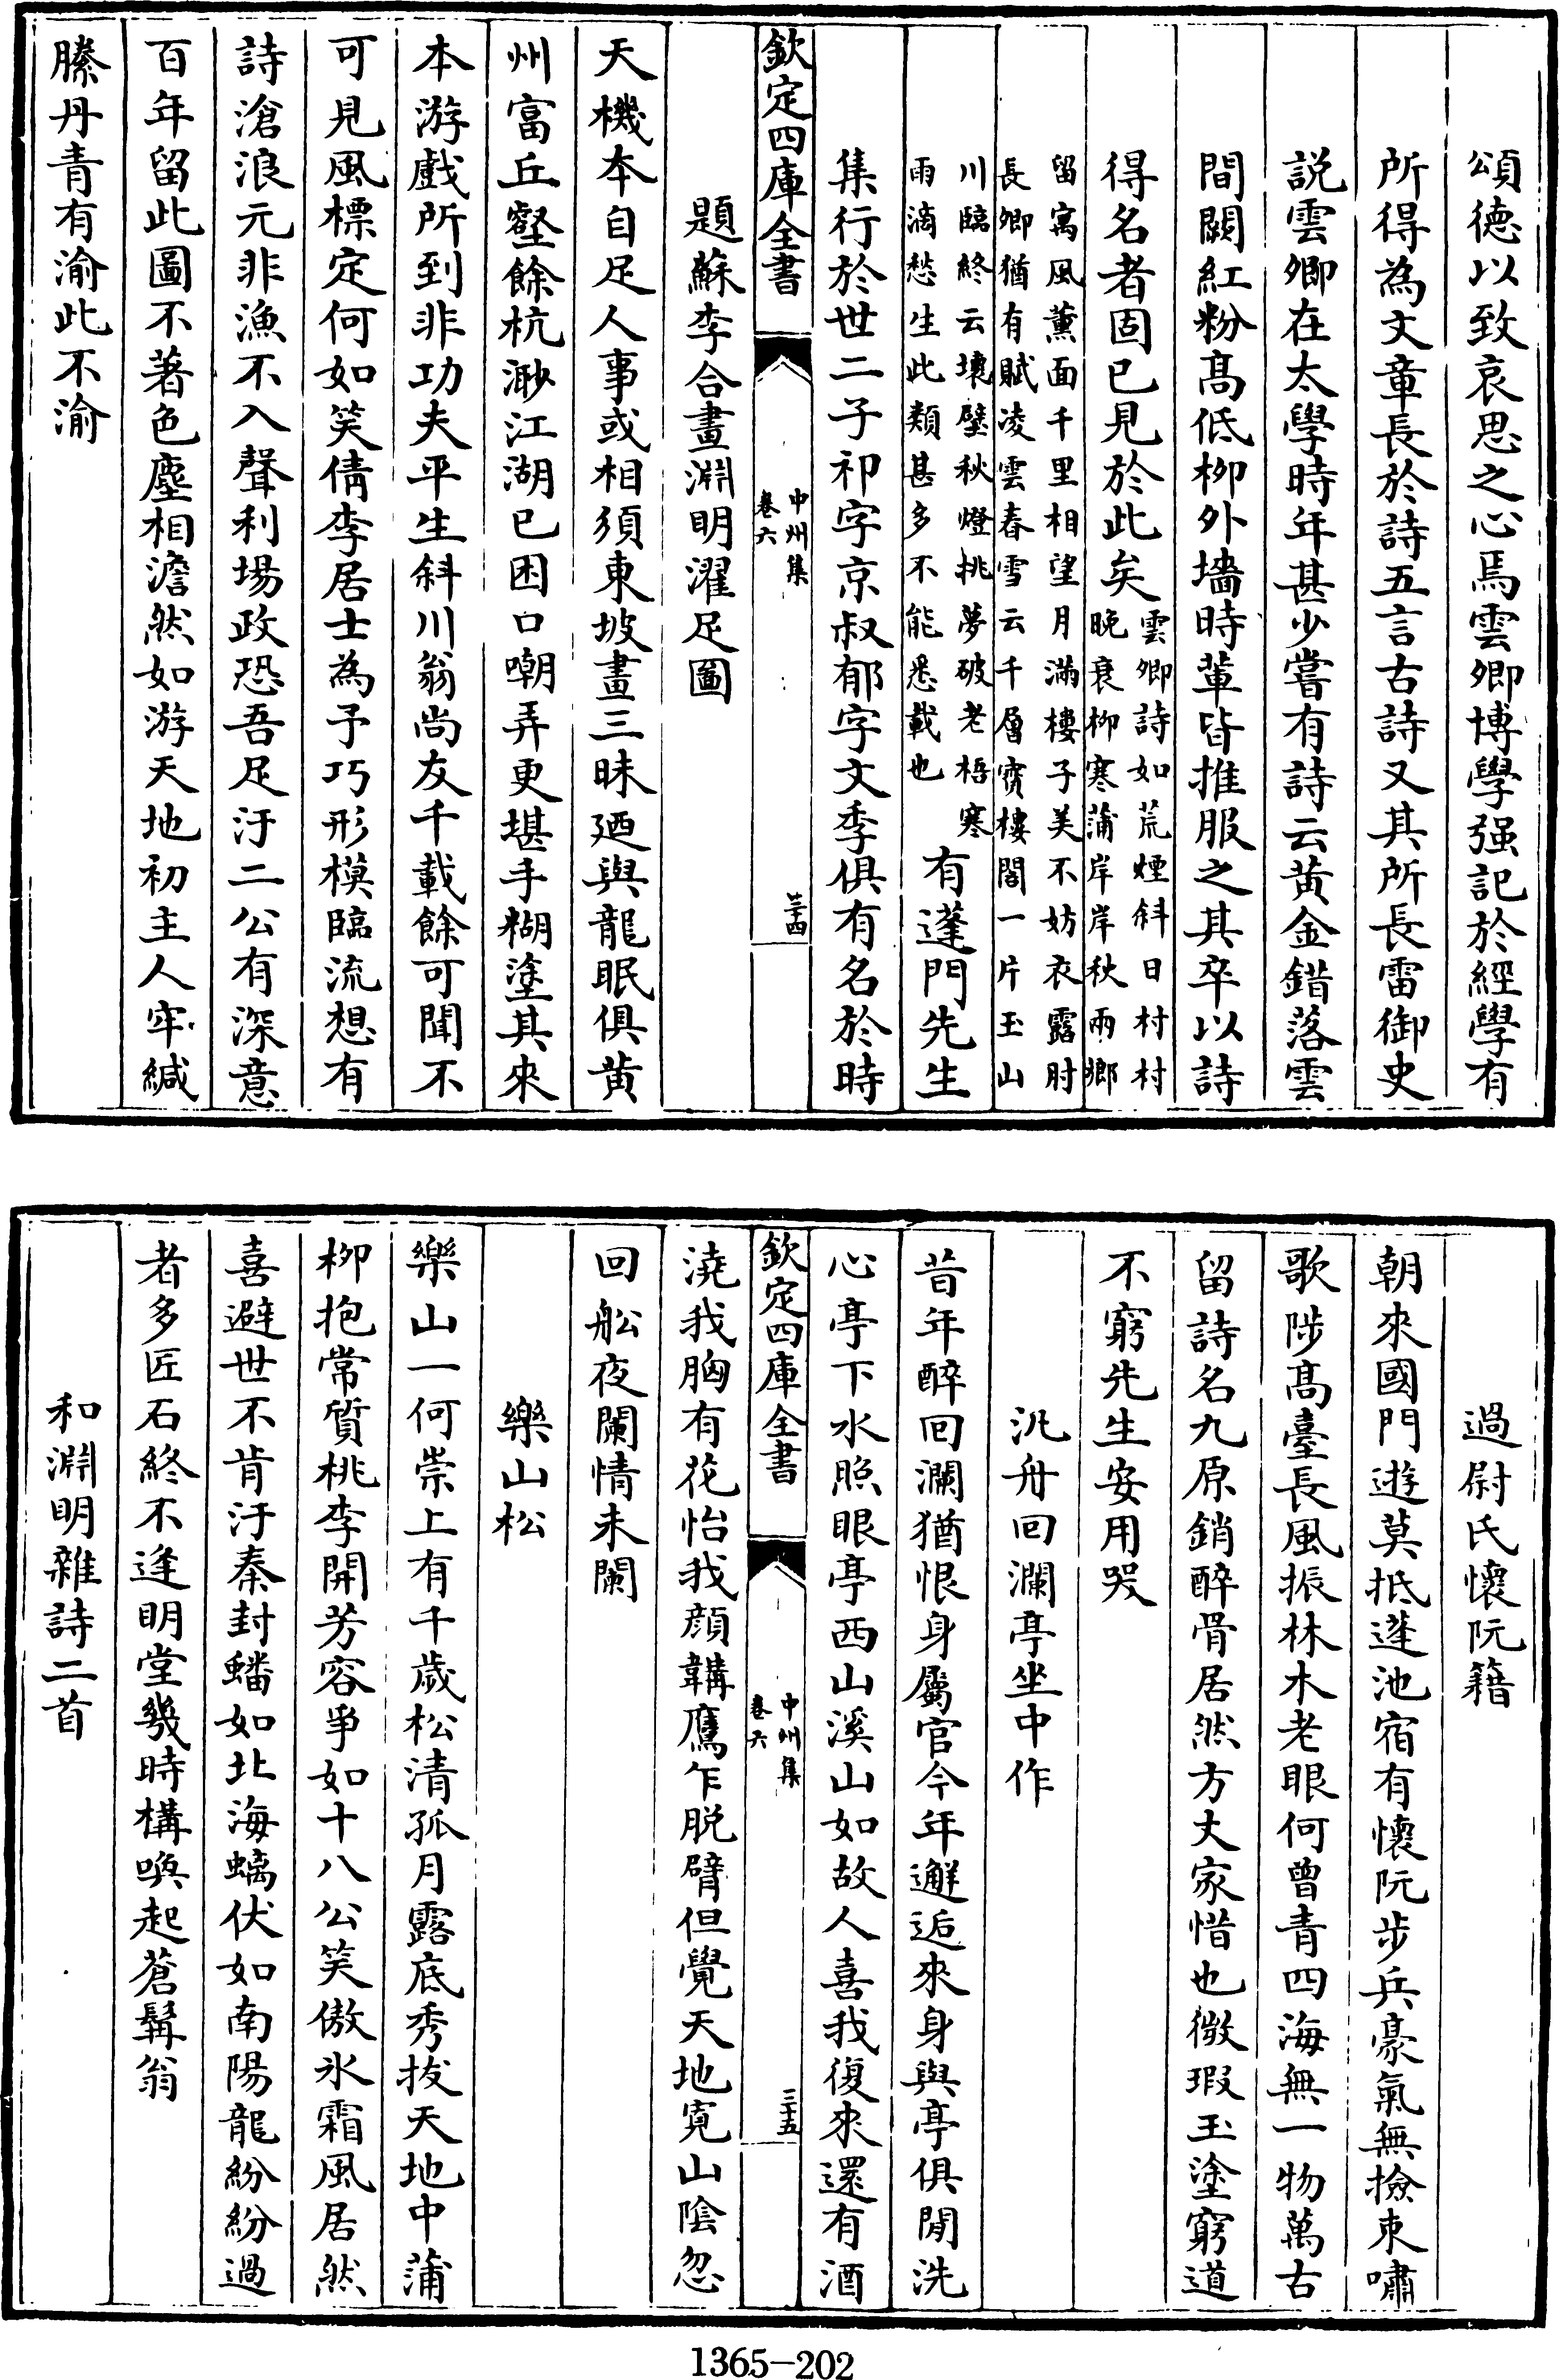 頌德以致哀思之心焉雲卿博學强記於經學有
所得為文章長於詩五言古詩又其所長雷御史
説雲卿在太學時年甚少嘗有詩云黄金錯落雲
間闕紅粉髙低柳外墻時輩皆推服之其卒以詩
得名者固已見於此矣
雲卿詩如荒煙斜日村村
晚衰柳寒蒲岸岸秋兩鄉
留寓風薰面千里相望月滿樓子美不妨衣露肘
長卿猶有賦凌雲春雪云千層寳樓閣一片玉山
川臨終云壞壁秋燈挑夢破老梧寒
雨滴愁生此類甚多不能悉載也
有蓬門先生
集行於世二子祁字京叔郁字文季俱有名於時
欽定四庫全書
中州集
卷六
三十四
題蘇李合畫淵明濯足圖
天機本自足人事或相須東坡畫三昧廼與龍眠俱黄
州富丘壑餘杭渺江湖已困口嘲弄更堪手糊塗其來
本游戲所到非功夫平生斜川翁尚友千載餘可聞不
可見風標定何如笑倩李居士為予巧形模臨流想有
詩滄浪元非漁不入聲利場政恐吾足汙二公有深意
百年留此圖不著色塵相澹然如游天地初主人牢緘
縢丹青有渝此不渝
過尉氏懷阮籍
朝來國門遊莫抵蓬池宿有懷阮步兵豪氣無撿束嘯
歌陟髙臺長風振林木老眼何曾青四海無一物萬古
留詩名九原銷醉骨居然方丈家惜也微瑕玉塗窮道
不窮先生安用哭
汎舟回瀾亭坐中作
昔年醉回瀾猶恨身屬官今年邂逅來身與亭俱閒洗
心亭下水照眼亭西山溪山如故人喜我復來還有酒
欽定四庫全書
中州集
卷六
三十五
澆我胸有花怡我顔韝鷹乍脱臂但覺天地寛山陰忽
回船夜闌情未闌
樂山松
樂山一何崇上有千歲松清孤月露底秀拔天地中蒲
柳抱常質桃李開芳容爭如十八公笑傲氷霜風居然
喜避世不肯汙秦封蟠如北海螭伏如南陽龍紛紛過
者多匠石終不逢明堂幾時構喚起蒼髯翁
和淵明雜詩二首
1365-202